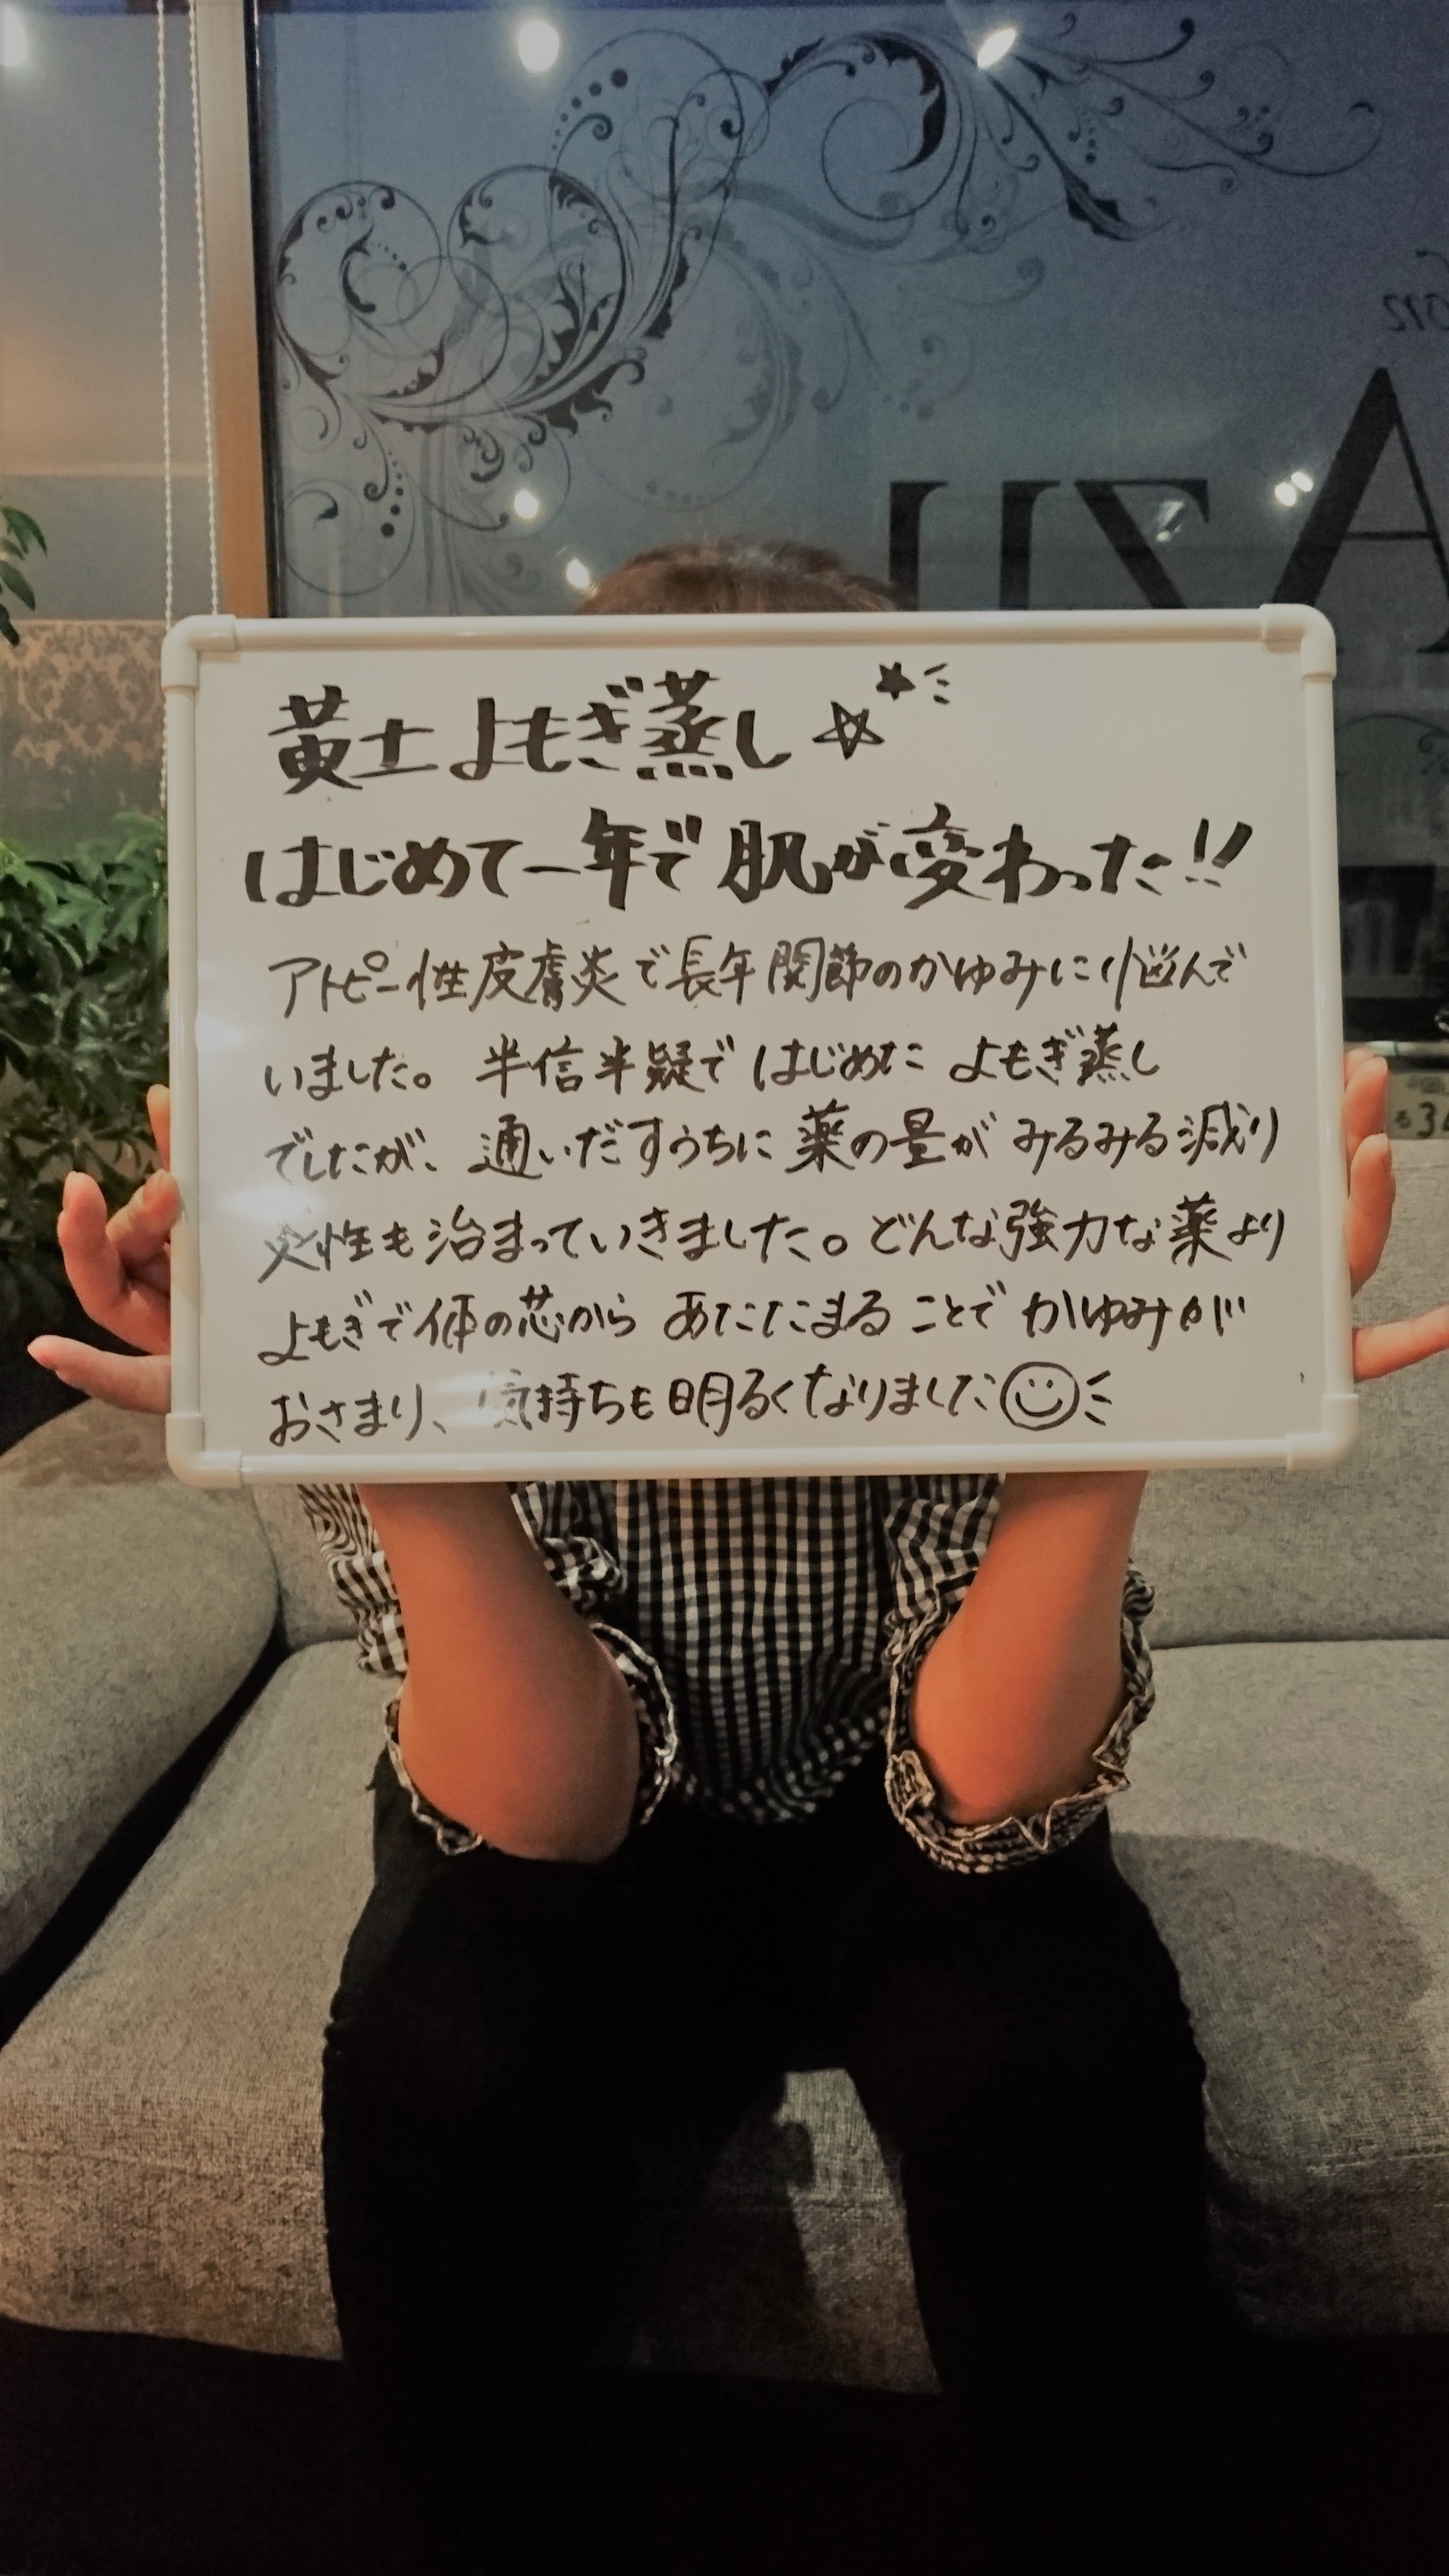 AZU
黄土よもぎ蒸し☆★
はじめて一年で肌が変わった!!
アトピー性皮膚炎で長年関節のかゆみに悩んで
いました。半信半疑ではじめたよもぎ蒸し
でしたが、通いだすうちに薬の量がみるみる減り
性も治まっていきました。どんな強力な薬より
よもぎで体の芯からあたたまることでかゆみが
おさまり、気持ちも明るくなりました